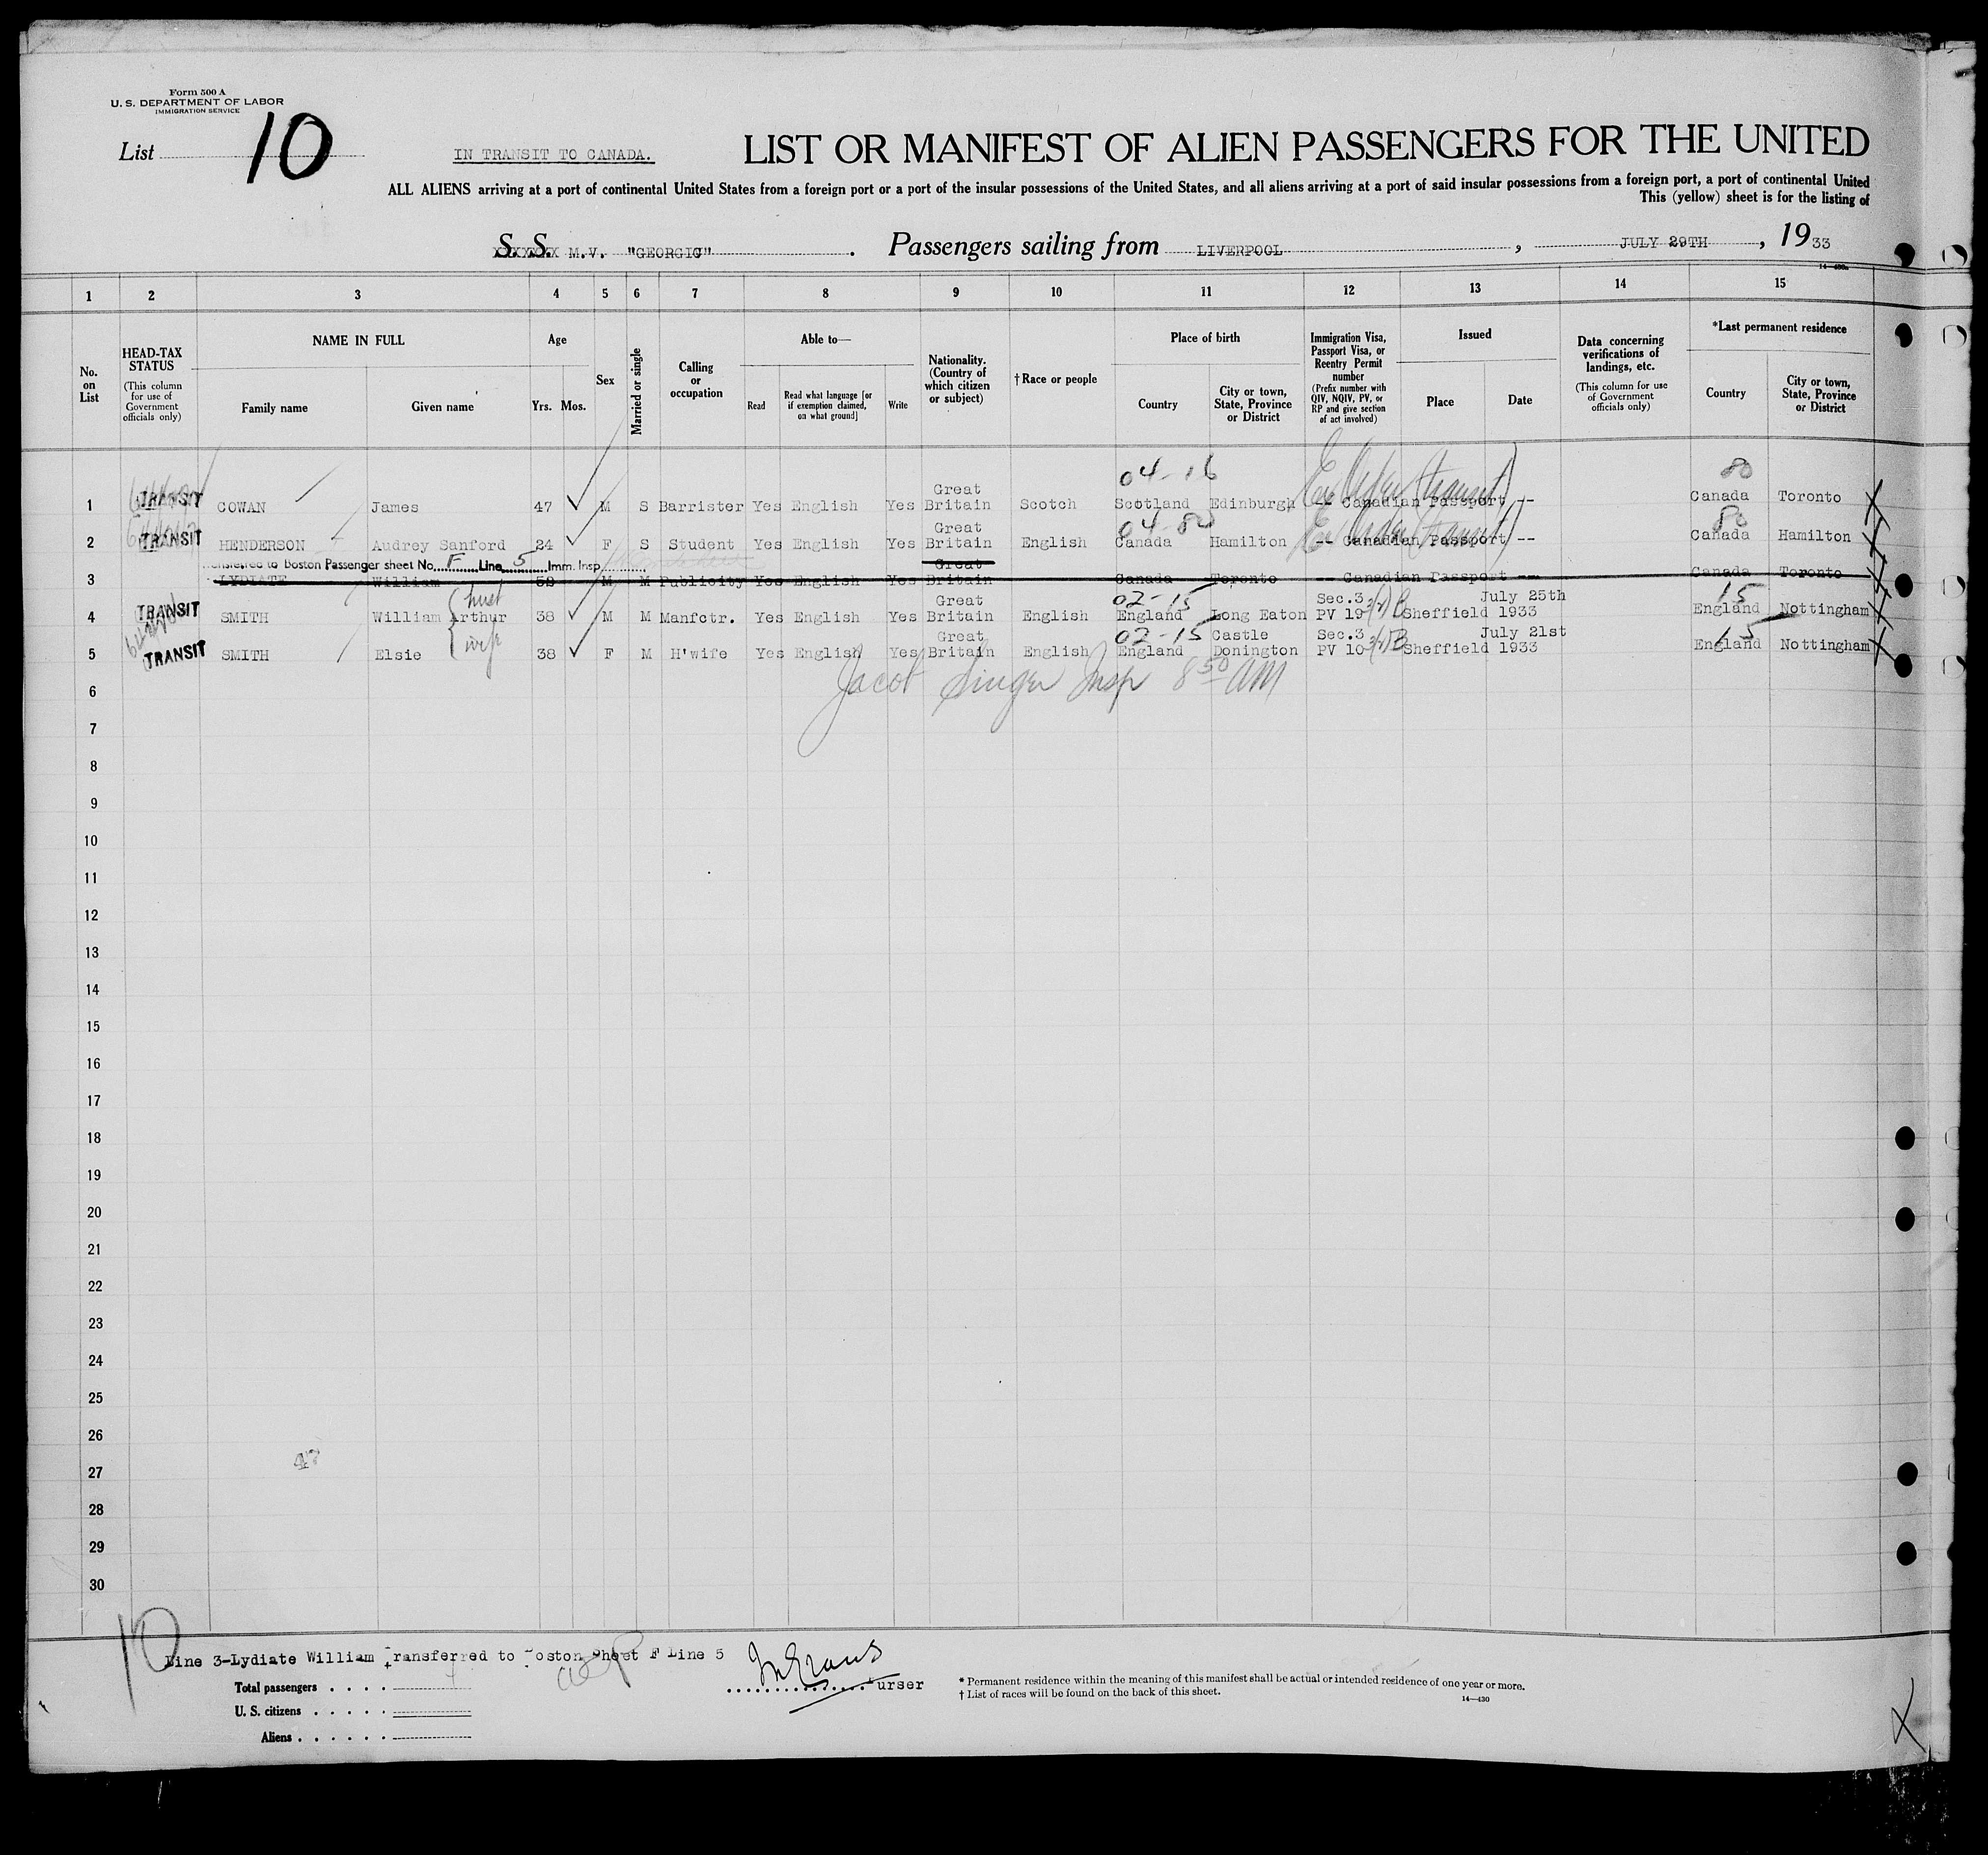 Form 500 A
U. S. DEPARTMENT OF LABOR
IMMIGRATION SERVICE
List 10
IN TRANSIT TO CANADA.
LIST OR MANIFEST OF ALIEN PASSENGERS FOR THE UNITED
ALL ALIENS arriving at a port of continental United States from a foreign port or a port of the insular possessions of the United States, and all aliens arriving at a port of said insular possessions from a foreign port, a port of continental United
This (yellow) sheet is for the listing of
S. S. M.V. "GEORGIC" . Passengers sailing from LIVERPOOL , JULY 29TH , 1933
14—430a
1 2 3 4 5 6 7 8 9 10 11 12 13 14 15
No. on List
HEAD-TAX STATUS
(This column for use of Government officials only)
NAME IN FULL
Family name
Given name
Age
Yrs. Mos.
Sex
Married or single
Calling or occupation
Able to—
Read
Read what language [or if exemption claimed, on what ground]
Write
Nationality. (Country of which citizen or subject)
†Race or people
Place of birth
Country
City or town, State, Province or District
Immigration Visa, Passport Visa, or Reentry Permit number
(Prefix number with QIV, NQIV, PV, or RP and give section of act involved)
Issued
Place
Date
Data concerning verifications of landings, etc.
(This column for use of Government officials only)
*Last permanent residence
Country
City or town, State, Province or District
04-16 80
1 TRANSIT COWAN James 47 M S Barrister Yes English Yes Great Britain Scotch Scotland Edinburgh -- Canadian Passport -- Canada Toronto
04-80 80
2 TRANSIT HENDERSON Audrey Sanford 24 F S Student Yes English Yes Great Britain English Canada Hamilton -- Canadian Passport -- Canada Hamilton
to Boston Passenger sheet No. F Line 5 Imm. Insp.
3 LYDIATE William 58 M M Publicity Yes English Yes Great Britain Canada Toronto -- Canadian Passport -- Canada Toronto
husb 02-15 15
4 TRANSIT SMITH William Arthur 38 M M Manfctr. Yes English Yes Great Britain English England Long Eaton Sec.3 PV 19 Sheffield July 25th 1933 England Nottingham
wife 02-15 15
5 TRANSIT SMITH Elsie 38 F M H'wife Yes English Yes Great Britain English England Castle Donington Sec.3 PV 10 Sheffield July 21st 1933 England Nottingham
Jacob Singer Insp 8 50 AM
6
7
8
9
10
11
12
13
14
15
16
17
18
19
20
21
22
23
24
25
26
47
27
28
29
30
10
Line 3-Lydiate William Transferred to Boston Sheet F Line 5
Total passengers . . . .
U. S. citizens . . . . .
Aliens . . . . . .
Evans
Purser
* Permanent residence within the meaning of this manifest shall be actual or intended residence of one year or more.
† List of races will be found on the back of this sheet.
14—430